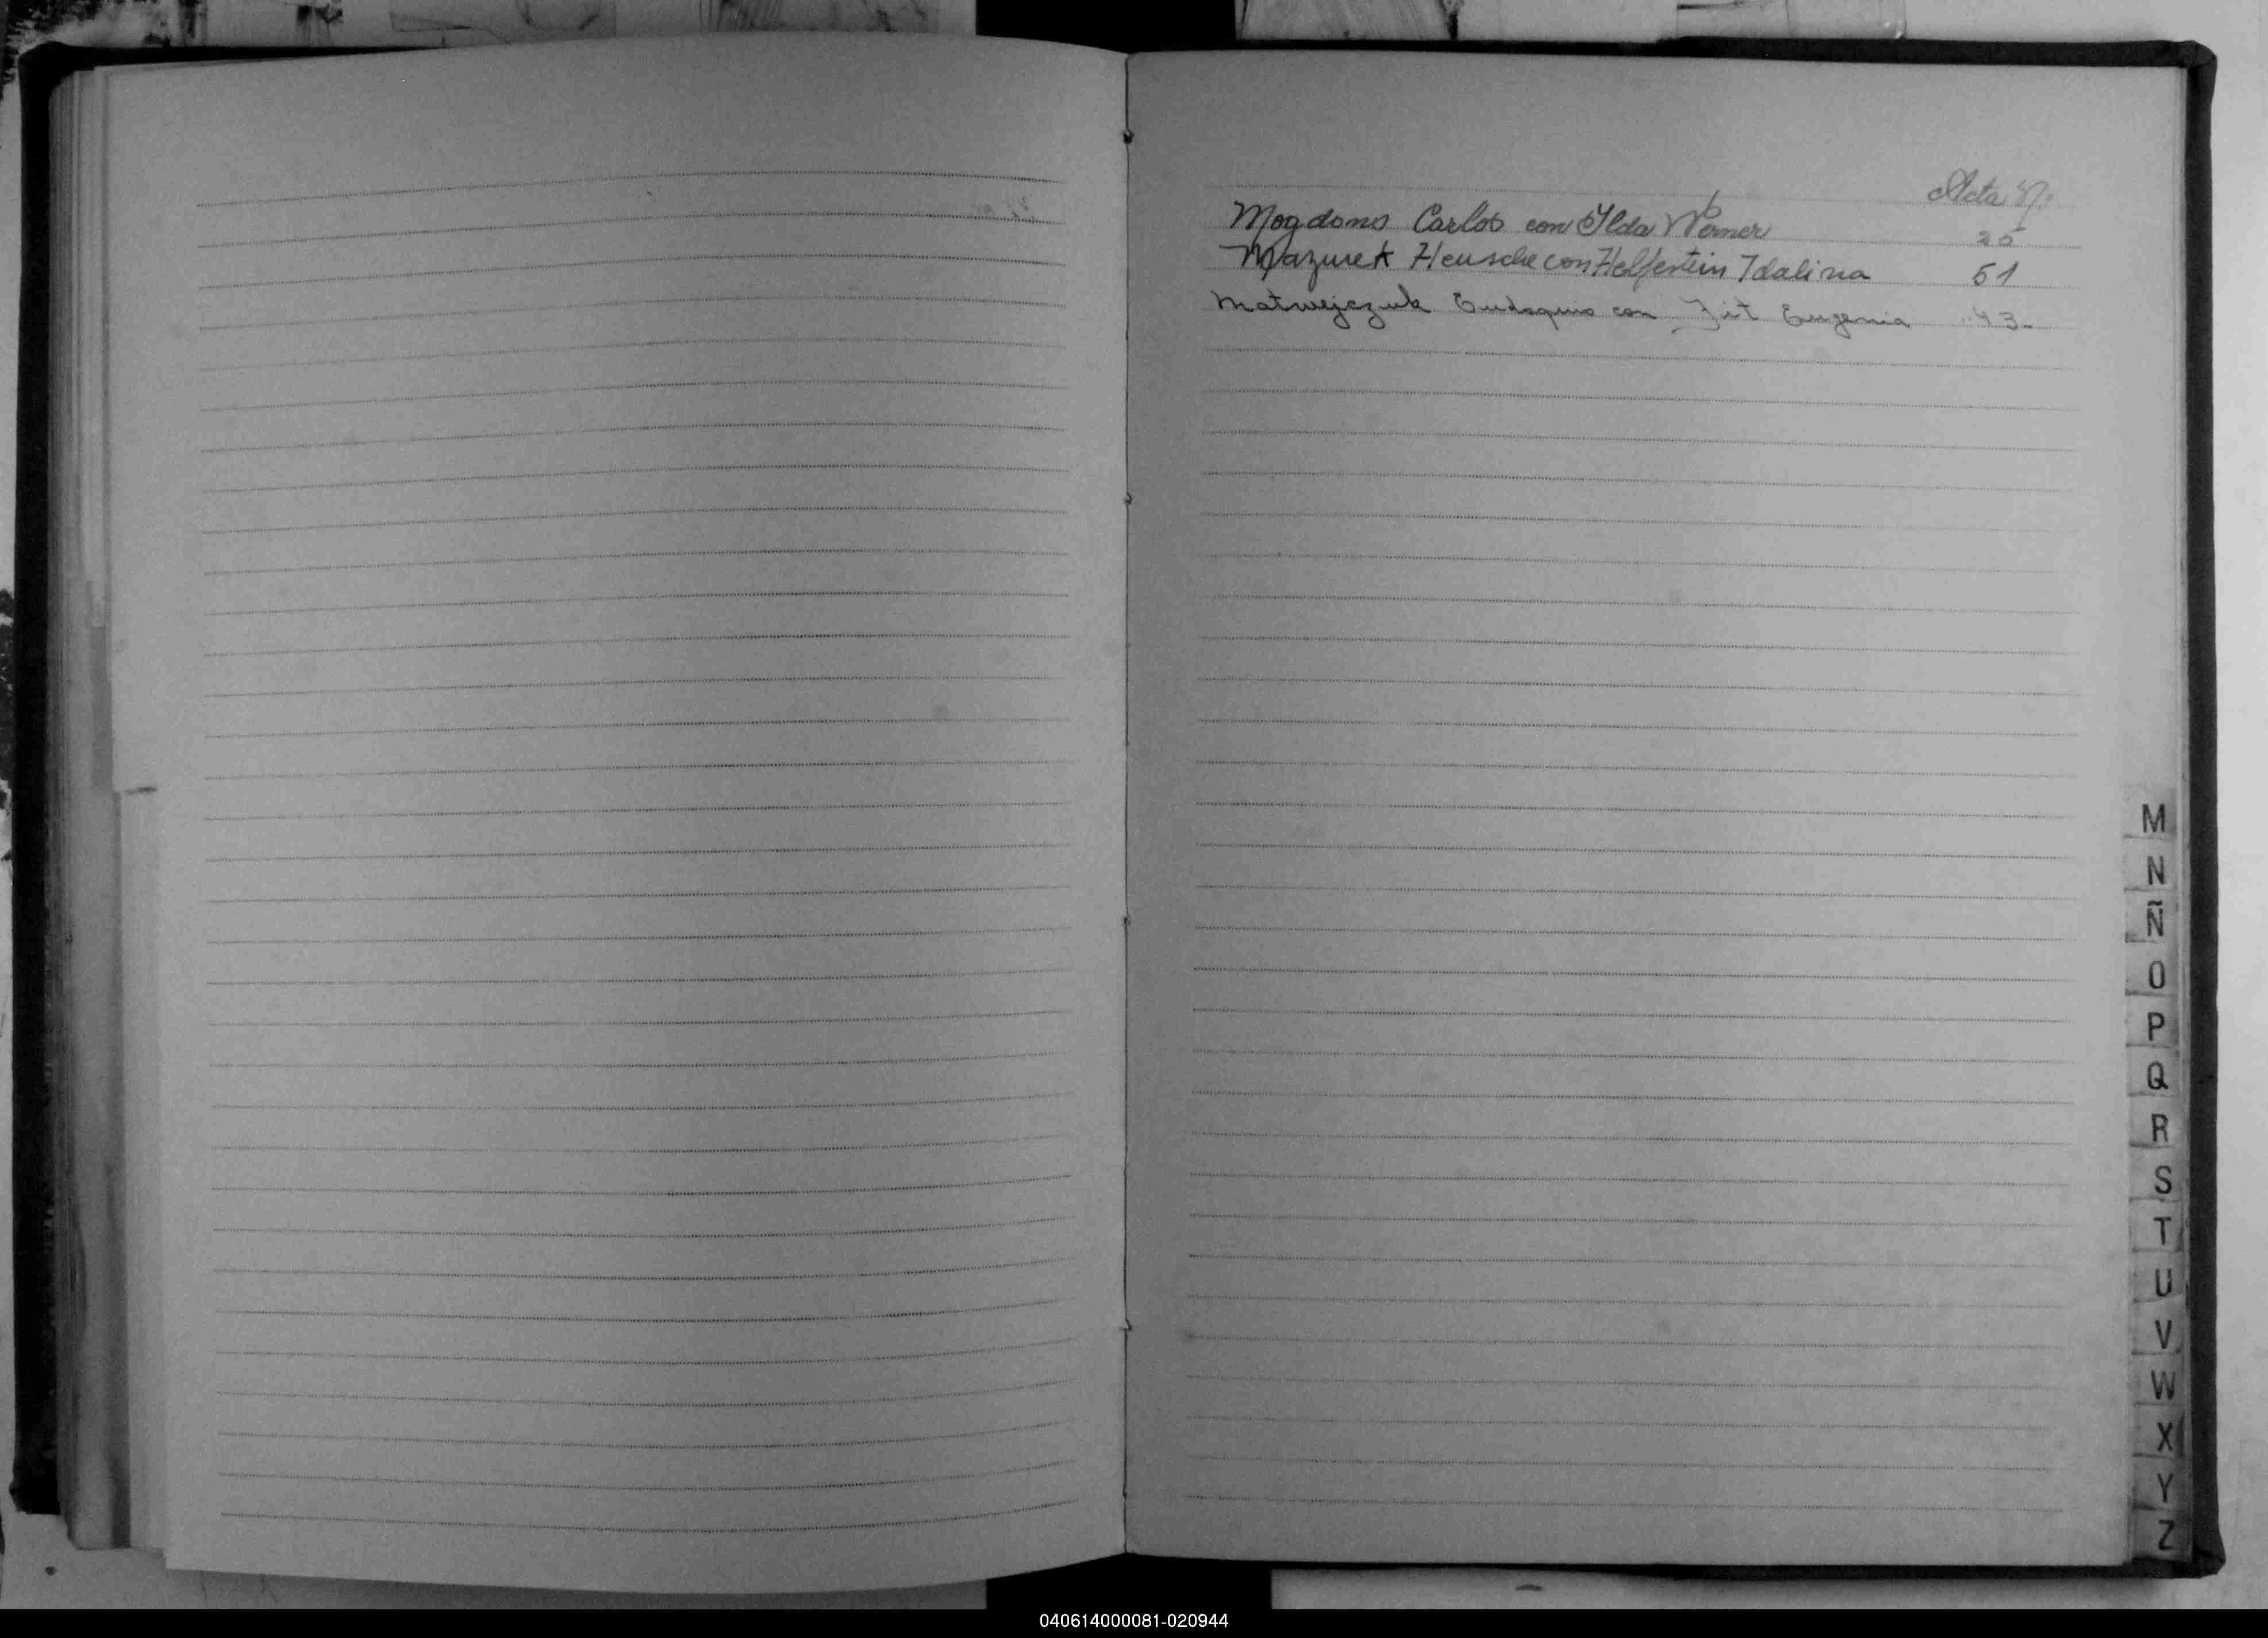 Acta Nº
Mogdans Carlos con Ilda Werner 25
Mazurek Heusche con Helfentein Idalina 51
Matwejczuk Eudoquio con Fit Eugenia 43-
M
N
Ñ
O
P
Q
R
S
T
U
V
W
X
Y
Z
040614000081-020944